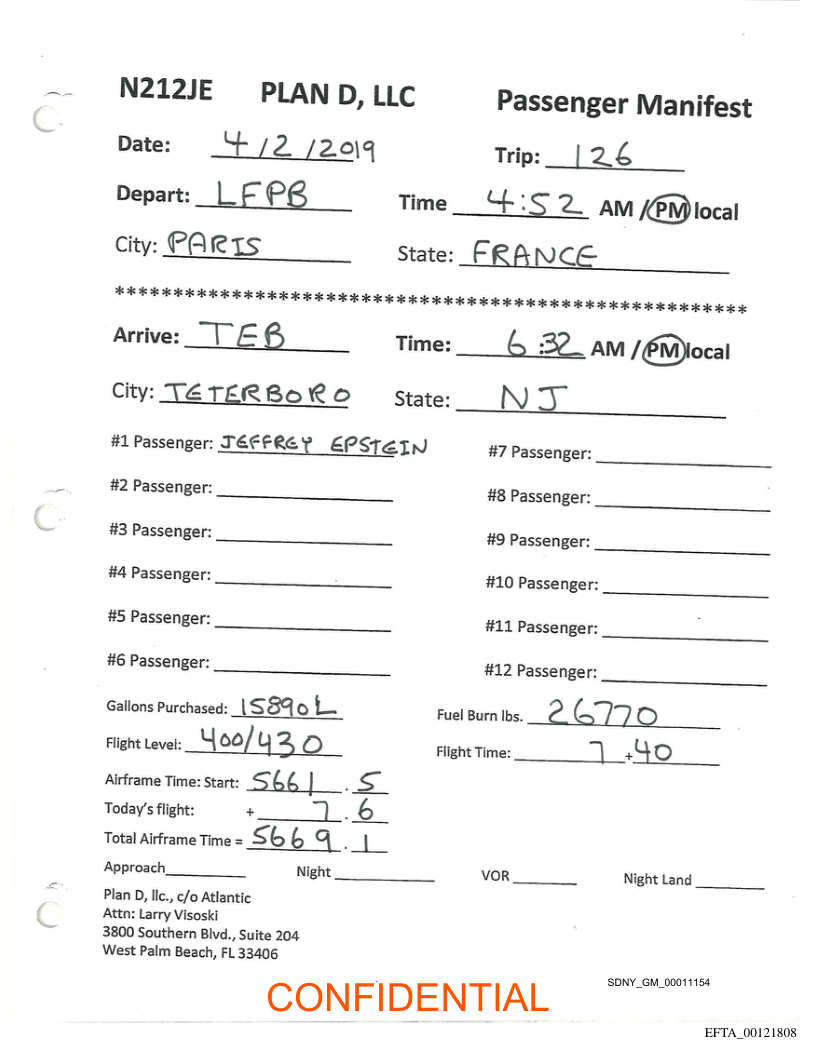 N212JE PLAN D, LLC Passenger Manifest
Date: 4/2/2019 Trip: 126
Depart: LFPB Time 4:52 AM / PM local
City: PARIS State: FRANCE
******************************************************
Arrive: TEB Time: 6:32 AM / PM local
City: TETERBORO State: NJ
#1 Passenger: JEFFREY EPSTEIN #7 Passenger:
#2 Passenger: #8 Passenger:
#3 Passenger: #9 Passenger:
#4 Passenger: #10 Passenger:
#5 Passenger: #11 Passenger:
#6 Passenger: #12 Passenger:
Gallons Purchased: 15890L Fuel Burn lbs. 26770
Flight Level: 400/430 Flight Time: 7 + 40
Airframe Time: Start: 5661 . 5
Today's flight: + 7 . 6
Total Airframe Time = 5669 . 1
Approach Night VOR Night Land
Plan D, llc., c/o Atlantic
Attn: Larry Visoski
3800 Southern Blvd., Suite 204
West Palm Beach, FL 33406
SDNY_GM_00011154
CONFIDENTIAL
EFTA_00121808